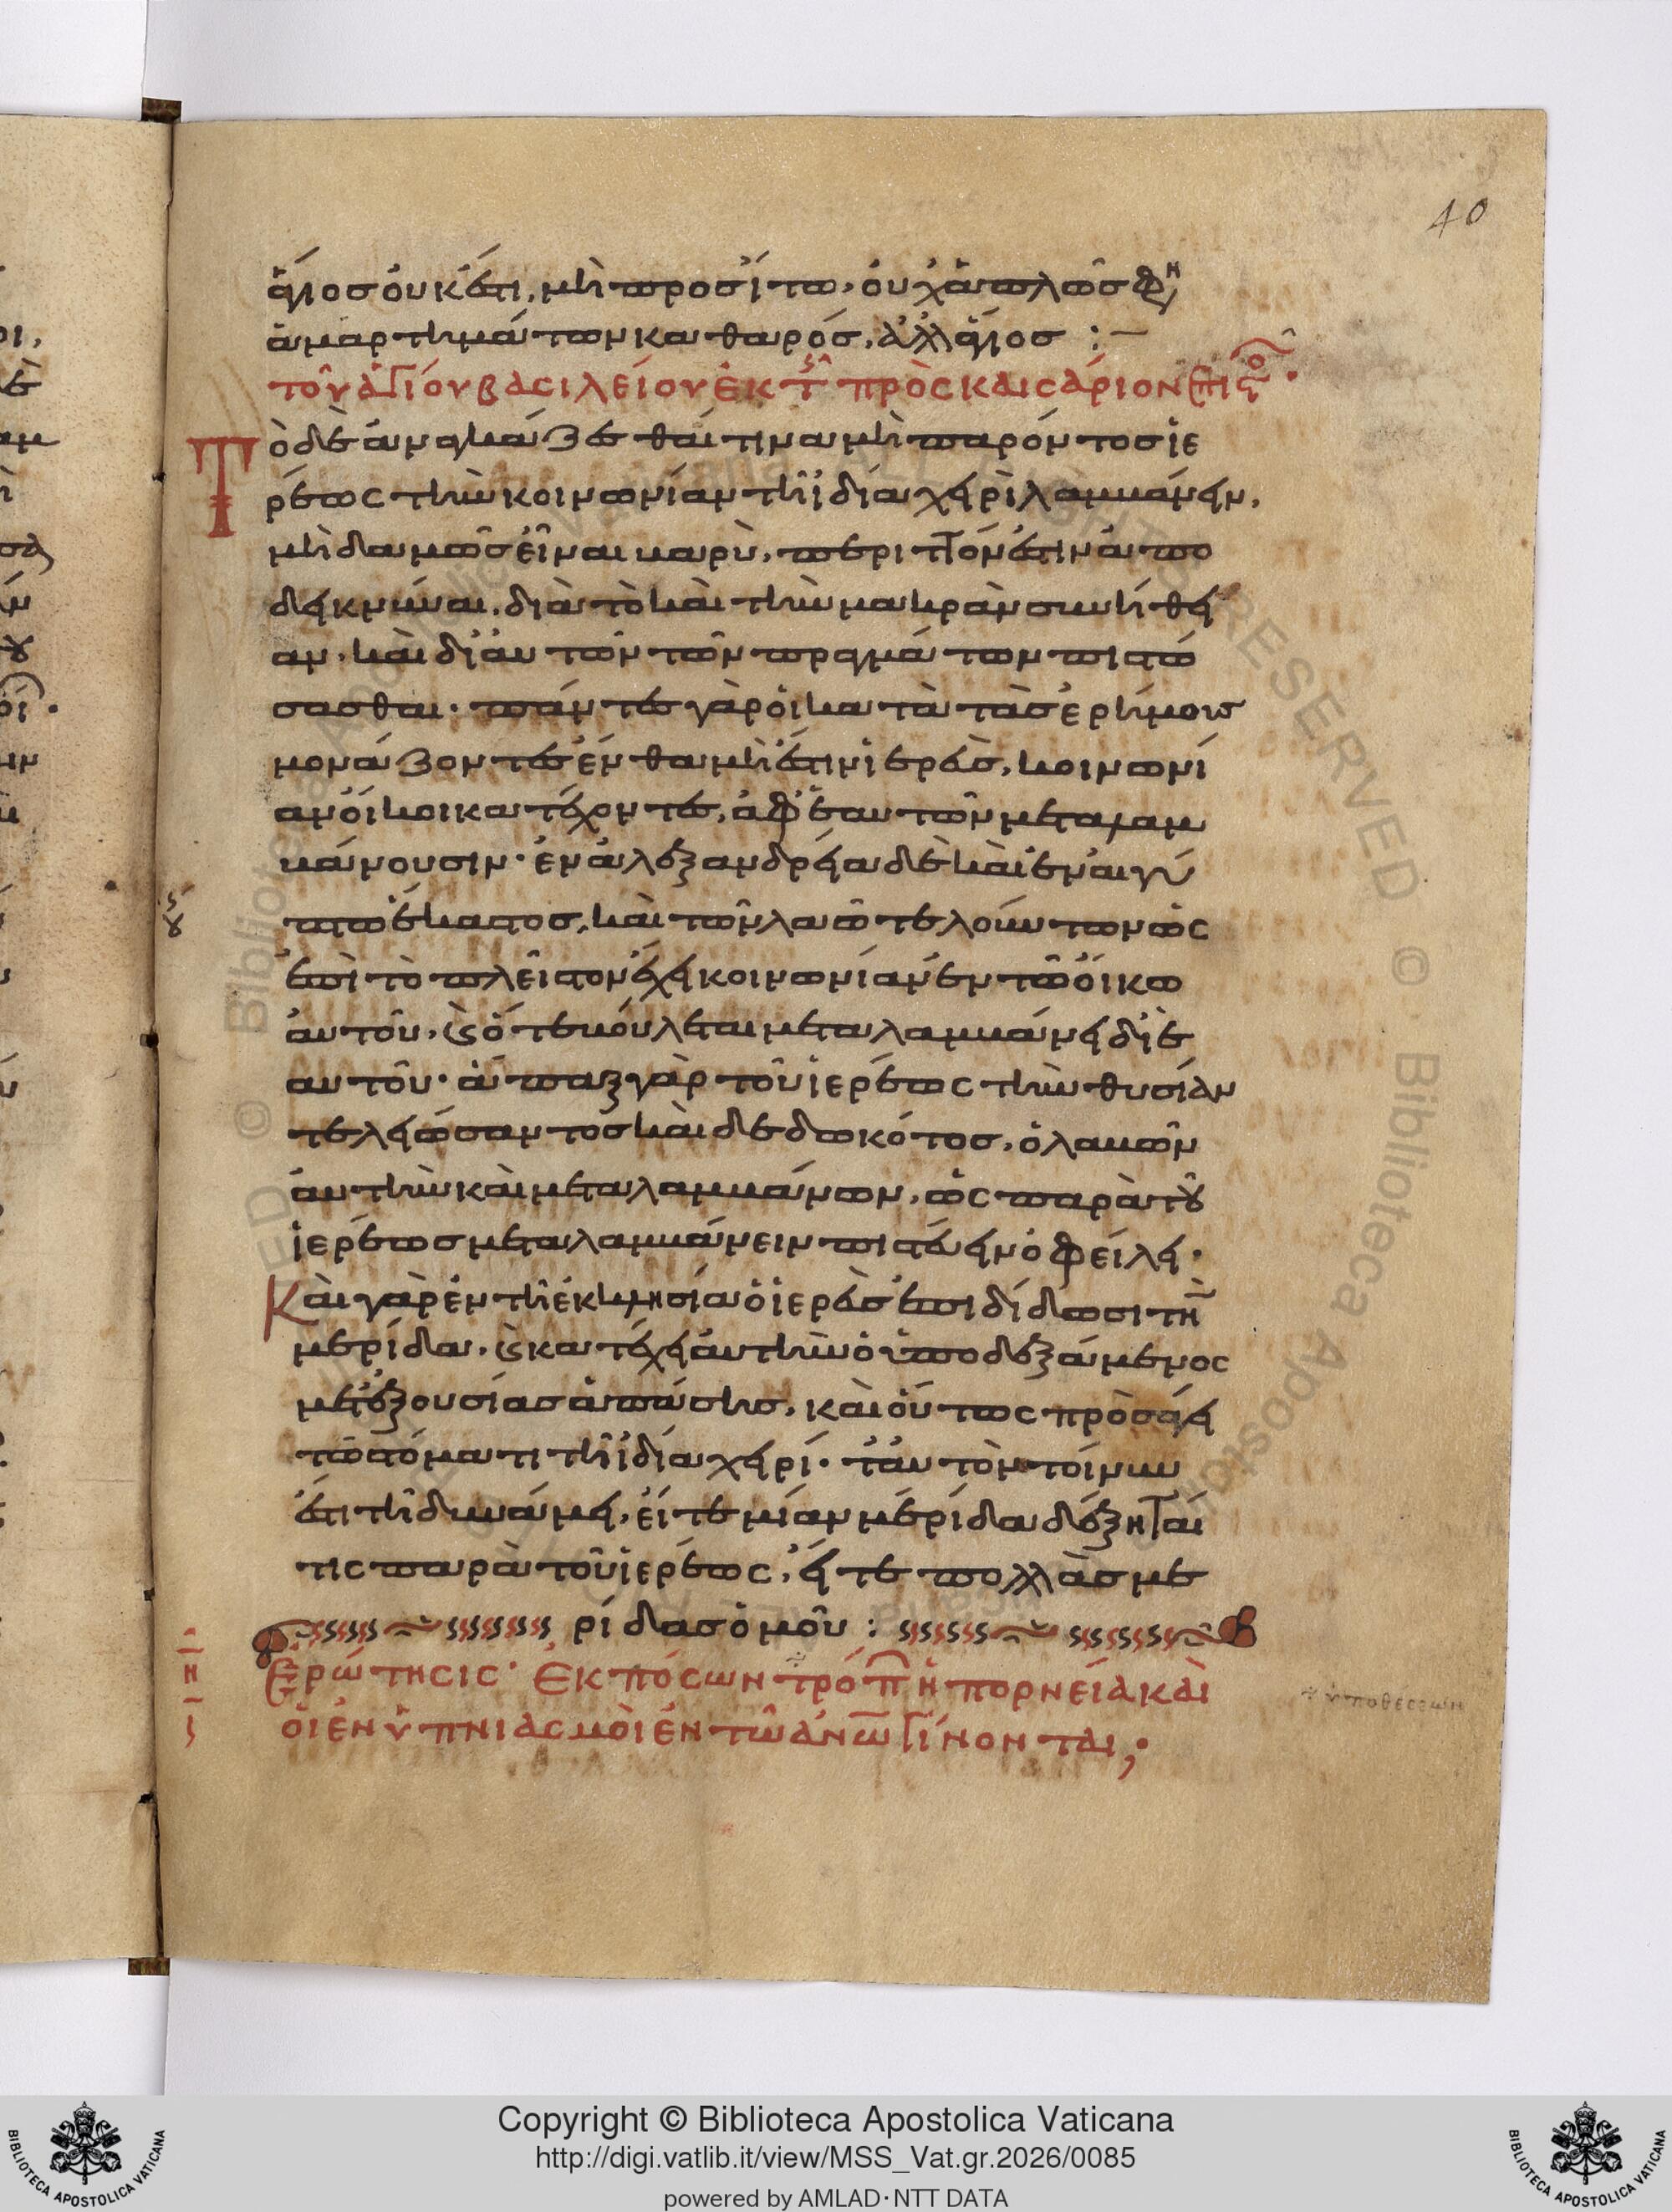 40
ἅγιος οὐκ ἔστι, μὴ προσίτω· οὐχ ἁπλῶς φη
ἁμαρτημάτων καθαρός, ἀλλ' ἅγιος :—
τοῦ ἁγίου βασιλείου ἐκ τ πρὸς καισάριον
Τὸ δὲ ἀναγκάζεσθαι τινα μὴ παρόντος ἱε
ρέως τὴν κοινωνίαν τῆ ἰδία χειρὶ λαμβάνειν,
μηδαμῶς εἶναι βαρὺ, περιττόν ἐστιν ἀπο
δεικνύναι, διὰ τὸ καὶ τὴν μακρὰν συνήθει
αν, καὶ δι' αυτῶν τῶν πραγμάτων πιστώ
σασθαι· πάντες γὰρ οἱ κατὰ τὰς ἐρήμους
μονάζοντες ἔνθα μὴ ἔστιν ἱερεὺς, κοινωνί
αν οἴκοι κατέχοντες, ἀφ' ἑαυτῶν μεταλαμ
βάνουσιν· ἐν ἀλεξανδρεία δὲ καὶ ἐν αἰγύ
πτω ἕκαστος, καὶ τῶν λαῶ τελούντων ὡς
ἐπὶ τὸ πλεῖστον ἔχει κοινωνίαν ἐν τῶ οἴκω
αὐτοῦ, καὶ ὅτε βούλεται μεταλαμβάνει δι' ἑ
αυτοῦ· ἅπαξ γὰρ τοῦ ἱερέως τὴν θυσίαν
τελειώσαντος καὶ δεδωκότος, ὁ λαβὼν
αὐτὴν καὶ μεταλαμβάνων, ὡς παρὰ τοῦ
ἱερέως μεταλαμβάνειν πιστεύειν ὀφείλει·
Καὶ γὰρ ἐν τῆ ἐκκλησία ὁ ἱερεὺς ἐπιδίδωσι τὴν
μερίδα, καὶ κατέχει αὐτὴν ὁ ὑποδεξάμενος
μετ' ἐξουσίας ἁπάσης, καὶ οὕτως πρὸσάγει
τῶ στόματι τῆ ἰδία χειρί· ταὐτὸν τοίνυν
ἐστι τῆ δυνάμει, εἴτε μίαν μερίδα δέξηται
τις παρὰ τοῦ ἱερέως, εἴτε πολλὰς με
ρίδας ὁμοῦ :
Ἐρώτησις· Ἐκ πόσων τρόπ ἡ πορνεία καὶ
οἱ ἐνυπνιασμοὶ ἐν τῶ ἀνω γίνονται;
ὑποθέσεων
Copyright © Biblioteca Apostolica Vaticana
http://digi.vatlib.it/view/MSS_Vat.gr.2026/0085
powered by AMLAD·NTT DATA
BIBLIOTECA APOSTOLICA VATICANA
BIBLIOTECA APOSTOLICA VATICANA